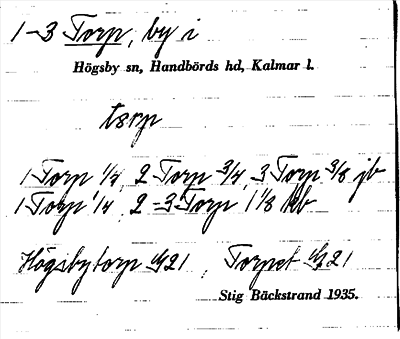 1-3 Torp, by i
Högsby sn, Handbörds hd, Kalmar l.
tɔrp
1 Torp 1/4, 2 Torp 3/4, 3 Torp 3/8 jb
1 Torp 1/4, 2-3 Torp 1 1/8 kb
Högsbytorp 21, Torpet 21
Stig Bäckstrand 1935.